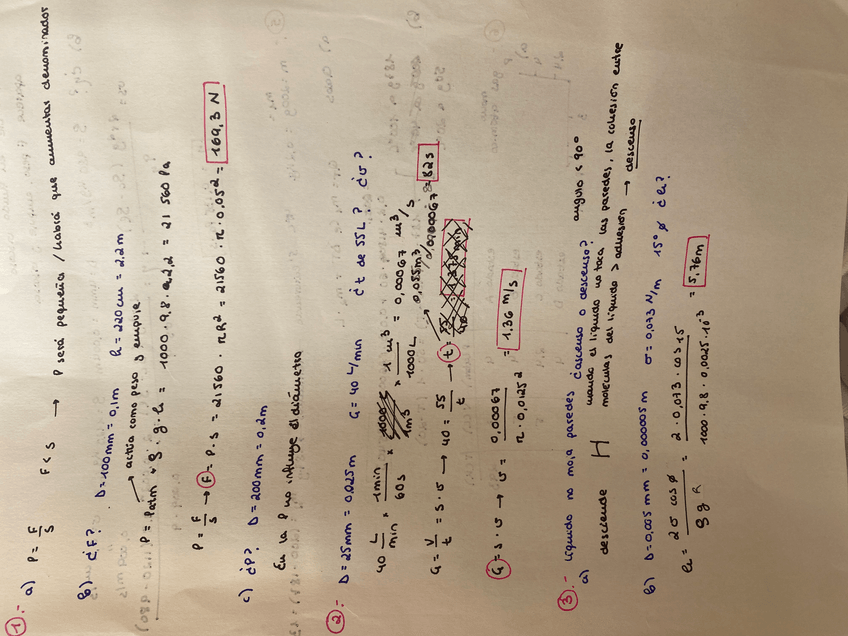 1.-
a) P = F/S F < S → P será pequeña / habrá que aumentar denominador
b) ¿F? D = 100mm = 0,1m h = 220cm = 2,2m
→ actúa como peso y empuje
P = Patm + ρ · g · h = 1000 · 9,8 · 2,2 = 21 560 Pa
P = F/S → F = P · S = 21560 · π R² = 21560 · π · 0,05² = 169,3 N
c) ¿P? D = 200mm = 0,2m
En la P no influye el diámetro
2.- D = 25mm = 0,025m G = 40 L/min ¿t de 55L? ¿v?
40 L/min × 1min/60s × 1000L/1m³ × 1 m³/1000L = 0,00067 m³/s
G = V/t = S · v → 40 = 55/t → t = 55/40 = 1,375 min
0,055m³/0,00067 = 82s
G = S · v → v = 0,00067/π · 0,0125² = 1,36 m/s
3.- Líquido no moja paredes ¿ascenso o descenso?
a) descende H angulo < 90°
cuando el líquido no toca las paredes, la cohesión entre
moléculas del líquido > adhesión → descenso
b) D = 0,005 mm = 0,000005m σ = 0,073 N/m 15° ø ¿h?
h = 2σ cos ø/ρ g R = 2 · 0,073 · cos 15/1000 · 9,8 · 0,0025 · 10⁻³ = 5,76m